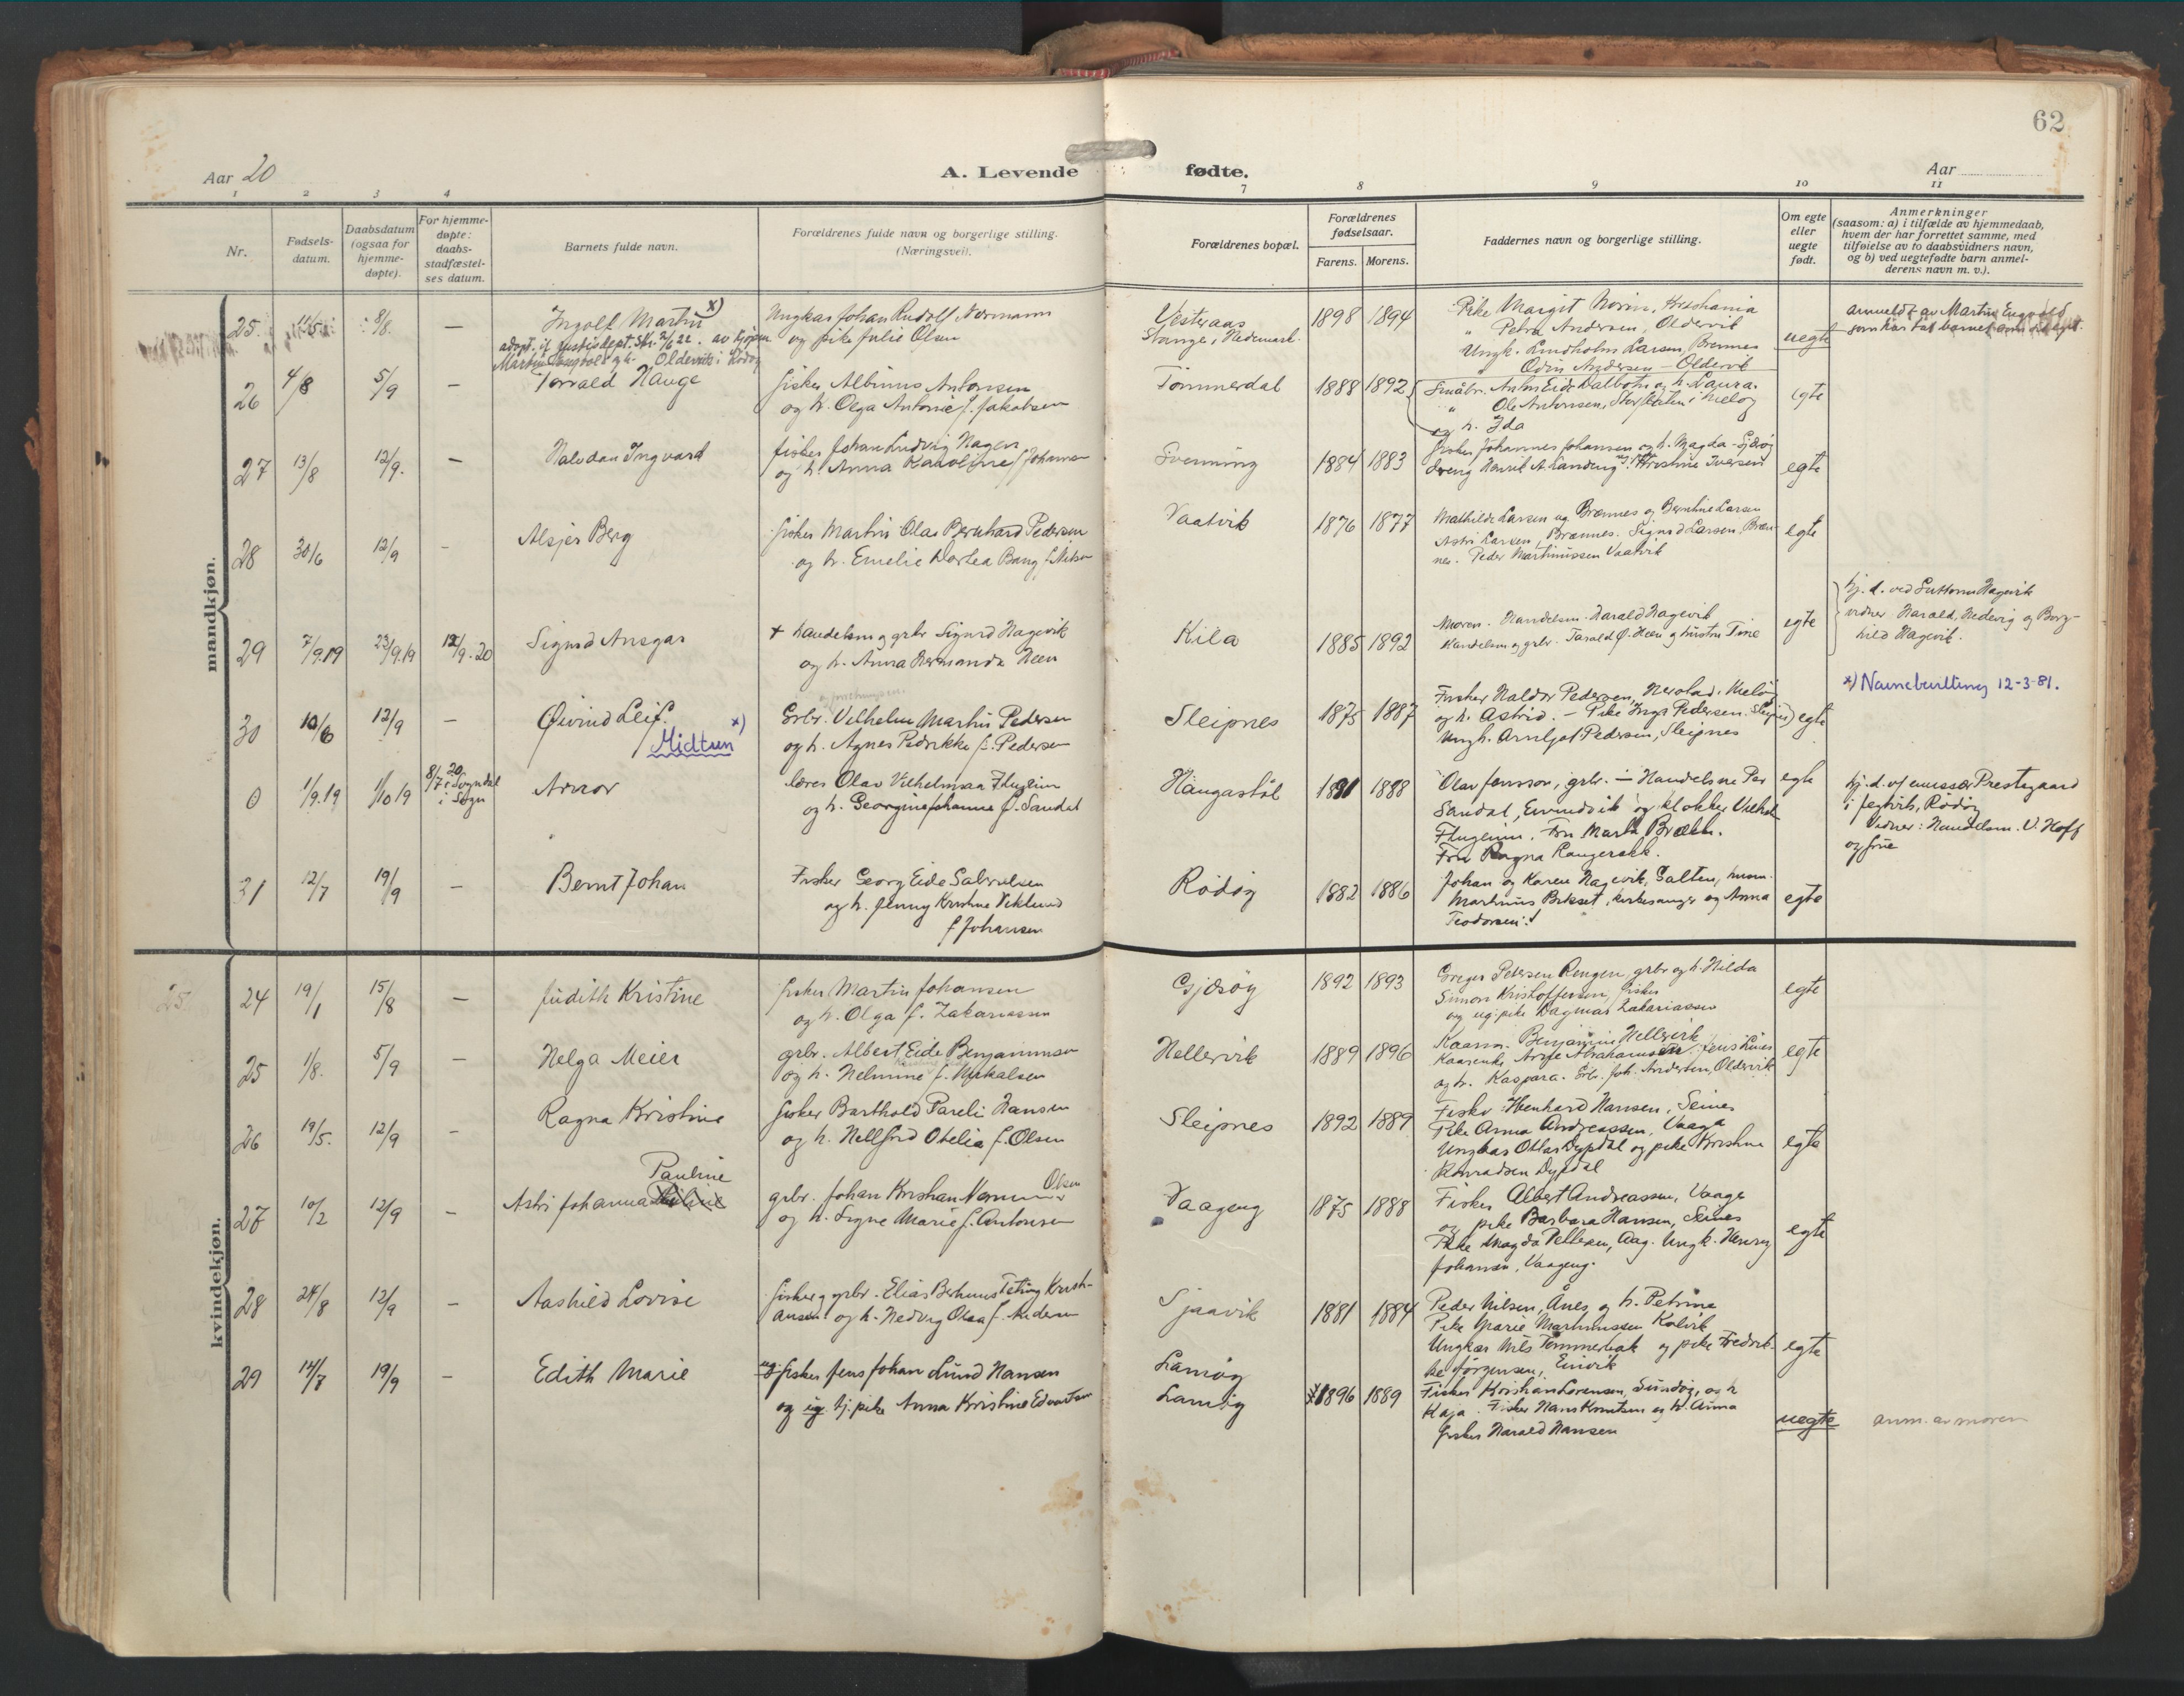 62
Aar 20
A. Levende fødte.
Aar
1 2 3 4 7 8 9 10 11
Nr.
Fødsels-
datum.
Daabsdatum
(ogsaa for
hjemme-
døpte).
For hjemme-
døpte:
daabs-
stadfæstel-
ses datum.
Barnets fulde navn.
Forældrenes fulde navn og borgerlige stilling.
(Næringsvei).
Forældrenes bopæl.
Forældrenes
fødselsaar.
Farens. Morens.
Faddernes navn og borgerlige stilling.
Om egte
eller
uegte
født.
Anmerkninger
(saasom: a) i tilfælde av hjemmedaab,
hvem der har forrettet samme, med
tilføielse av to daabsvidners navn,
og b) ved uegtefødte barn anmel-
derens navn m. v.).
mandkjøn.
25. 8/8. —
Ingolf Martin x)
adopt. if justisdept. skr. 2/6 22. av
Martin og h. Oldervik i Rødøy
Ungkar Johan Rudolf Normann
og pike Julie Olsen
Vesteraas
Stange, Hedemark
1898 1894
Pike Margit Norin, Kristiania
" Petra Andersen, Oldervik
Ungk. Lindholm Larsen, Brennes
" Odin Andersen - Oldervik
uegte
anmeldt av Martin
som har tat barnet
26 4/8 5/9 —
Torvald Hauge
fisker Albinus Antonsen
og h. Olga Antonie f. Jakobsen
Tømmerdal
1888 1892
Småbr. Anton Eide Dalbotn og h. Laura.
" Ole Antonsen, i Meløy
og h. Ida
egte
27 13/8 12/9. —
Halvdan Ingvard
fisker Johan Ludvig Hagen
og h. Anna Karoline f. Johansen
Svenning
1884 1883
fisker Johannes Johansen og h. Magda - Gjerøy
dreng Henrik A. Kristine Iversen
egte
28 30/6 12/9 -
Alsjer Berg
fisker Martin Olai Bernhard Pedersen
og h. Emelie Dortea Bang f. Nilsen
Vaatvik
1876 1877
Mathilde Larsen ug. Brennes og Berntine Larsen
Astri Larsen, Brennes. Sigurd Larsen, Bren-
nes. Peder Martinussen Vaatvik
egte
29 7/9.19 23/9.19 12/9.20
Sigurd Ansgar
+ handelsm og grbr Sigurd Hagevik
og h. Anna Hermanda Heen
Kila
1885 1892
Moren. Handelsm. Harald Hagevik
Handelsm og grbr. Harald J. Heen og hustru Tine
egte
hj. d. ved Guttorm Hagevik
vidner Harald, Hedevig og Borg-
hild Hagevik.
x) Navnebevilling 12-3-81.
30 10/6 12/9 —
Øivind Leif. x)
Midtun
Grbr. Vilhelm Martin Pedersen
og h. Agnes Fredrikke f. Pedersen
Sleipnes
1875 1887
Fisker Haldor Pedersen, Nerstad. Meløy
og h. Astrid. - Pike Inga Pedersen. Sleipnes
Ungk. Arnljot Pedersen, Sleipnes
egte
0 1/9.19 1/10 19 8/7 20 i Sogndal
i Sogn
Arnor
lærer Olav Vilhelmsen Flugeim
og h. Georgine Johanne f. Sandal
Haugastøl
1891 1888
Olav Jonsson, grbr. - Handelsm Per
Sandal, Eivindvik og klokker Vilhelm
Flugeim. Fru Marta Brekke.
Fru Ragna
egte
hj. d. af emissær Prestegaard
i Jegtvik, Rødøy
Vidner: Handelsm. V. Hoff
og frue
31 12/7 19/9 —
Bernt Johan
Fisker Georg Eide Salvesen
og h. Jenny Kristine Viklund
f. Johansen
Rødøy
1882 1886
Johan og Karen Hagevik, Galten,
Martinus Birkset, kirkesanger og Anna
Teodorsen.
egte
kvindekjøn.
25.
24 19/1 15/8 —
Judith Kristine
fisker Martin Johansen
og h. Olga f. Zakariassen
Gjerøy
1892 1893
Greger Petersen Rengen, grbr og h. Hilda
Simon Kristoffersen, fisker
og ug. pike Dagmar Zakariassen
egte
25 1/8. 5/9 —
Helga Meier
grbr. Albert Eide Benjaminsen
og h. Helmine f. Mikalsen
Hellervik
1889 1896
Kaarm. Benjamin Hellervik
Kaarenke Anne Abrahamsen. Jens
og h. Kaspara. Grbr. Joh. Andersen, Oldervik
egte
26 19/5. 12/9 —
Ragna Kristine
fisker Barthold Pareli Hansen
og h. Hellfrid Otelia f. Olsen
Sleipnes
1892 1889
Fisker Henhard Hansen, Seines
Pike Anna Andreassen, Vaaga
Ungkar Ottar Dypdal og pike Kristine
Konradsen Dypdal
egte
27 10/2 12/9 —
Pauline
Astri Johanna
grbr. Johan Kristian Normann Olsen
og h. Signe Marie f. Antonsen
Vaageng
1875 1888
Fisker Albert Andreassen, Vaage
og pike Barbara Hansen, Seines
Pike Magda Pettersen, Aag. Ungk. Henry
Johansen, Vaageng.
egte
28 24/8 12/9 —
Aashild Lovise
fisker og grbr. Elias Berhus Teting Krist-
iansen og h. Hedvig Olea f. Andersen
Sjaavik
1881 1884
Peder Nilsen, Ånes og h. Petrine
Pike Marie Martinussen Kalvik
Ungkar Nils Tømmerbak og pike Fredrik-
ke Jørgensen, Envik
egte
29 14/7 19/9 —
Edith Marie
ug. fisker Jens Johan Lund Hansen
og ug. tj. pike Anna Kristine Edvartsen
Lamøy
Lamøy
1896 1889
Fisker Kristian Lorensen, Sundøy, og h
Kaja. Fisker Hans Knutsen og h. Anna
fisker Harald Hansen
uegte
anm. av moren